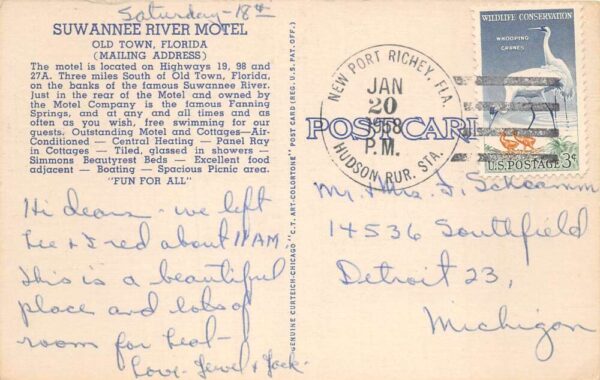 Saturday - 18th
SUWANNEE RIVER MOTEL
OLD TOWN, FLORIDA
(MAILING ADDRESS)
The motel is located on Highways 19, 98 and
27A. Three miles South of Old Town, Florida,
on the banks of the famous Suwannee River.
Just in the rear of the Motel and owned by
the Motel Company is the famous Fanning
Springs, and at any and all times and as
often as you wish, free swimming for our
guests. Outstanding Motel and Cottages—Air-
Conditioned — Central Heating — Panel Ray
in Cottages — Tiled, glassed in showers —
Simmons Beautyrest Beds — Excellent food
adjacent — Boating — Spacious Picnic area.
"FUN FOR ALL"
Hi dears - we left
Lee & Fred about 11 AM
This is a beautiful
place and lots of
room for
Love - Jewel & Jack
GENUINE CURTEICH-CHICAGO "C.T. ART-COLORTONE" POST CARD (REG. U.S. PAT. OFF.)
POST CARD
NEW PORT RICHEY, FLA.
JAN
20
1958
P.M.
HUDSON RUR. STA.
WILDLIFE CONSERVATION
WHOOPING
CRANES
U.S. POSTAGE 3¢
Mr. & Mrs. F. Schramm
14536 Southfield
Detroit 23,
Michigan